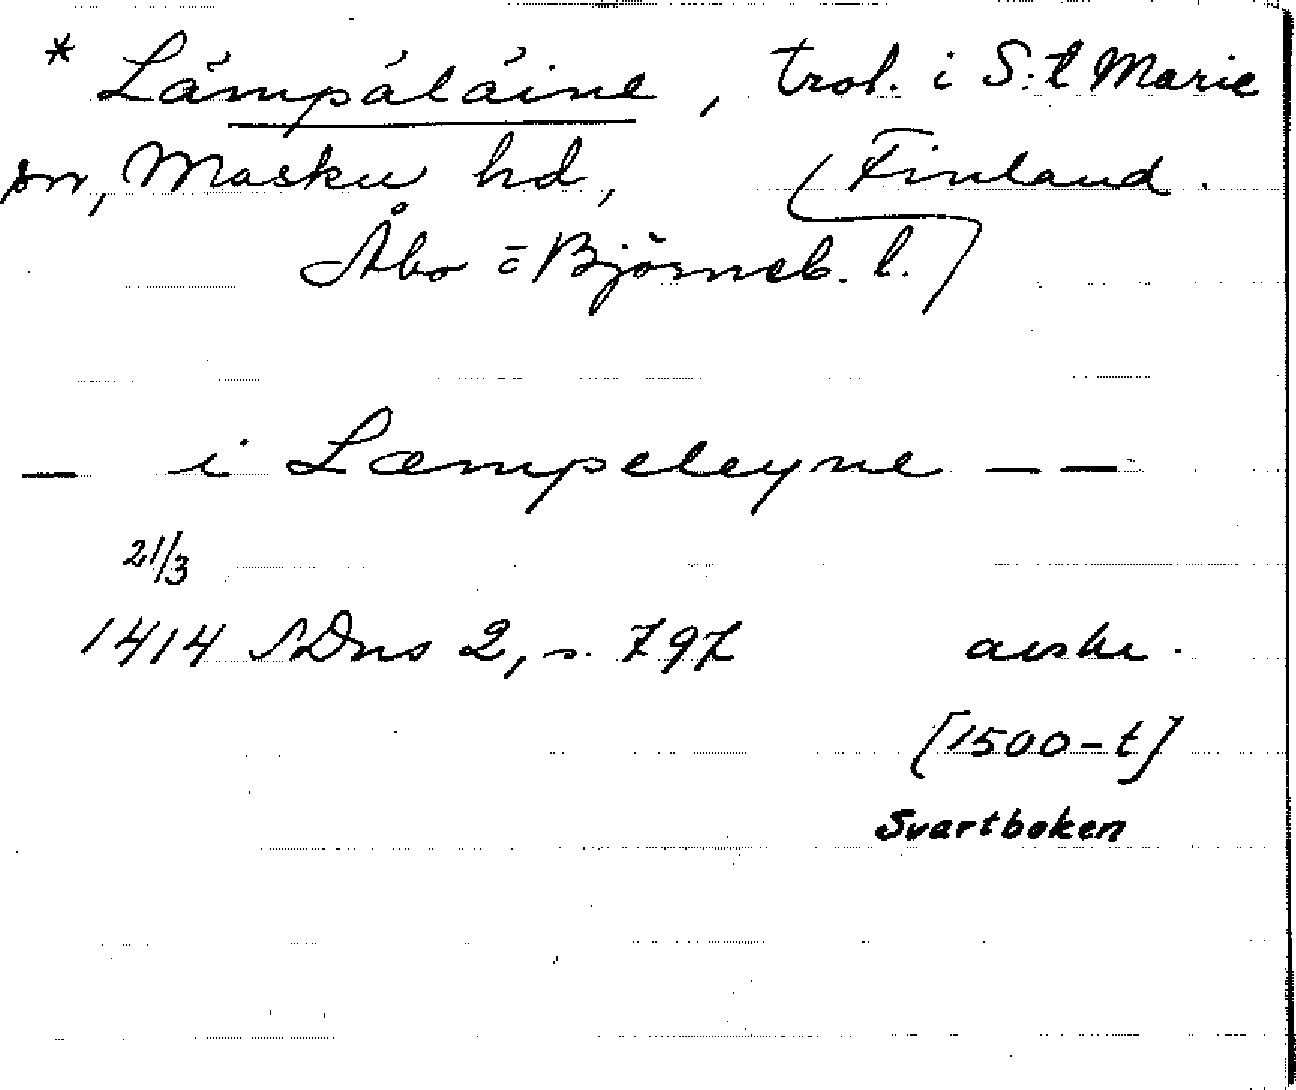 * Lämpäläine, trol. i S:t Marie
sn, Masku hd, Finland.
Åbo = Björneb. l.
— i Læmpeleyne — —
21/3
1414 SDns 2, s. 797 avskr.
[1500-t]
Svartboken